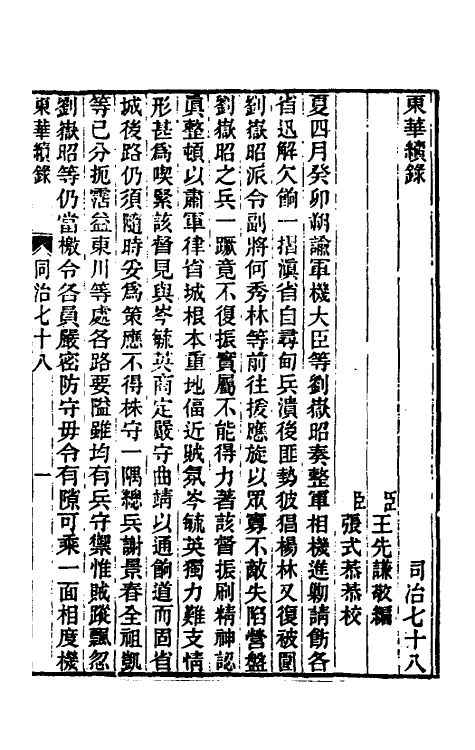 東華續錄 同治七十八
臣王先謙敬編
臣張式恭恭校
夏四月癸卯朔諭軍機大臣等劉嶽昭奏整軍相機進勦請飭各
省迅解欠餉一摺滇省自尋甸兵潰後匪勢彼猖楊林又復被圍
劉嶽昭派令副將何秀林等前往援應旋以眾寡不敵失陷營盤
劉嶽昭之兵一蹶竟不復振實屬不能得力著該督振刷精神認
眞整頓以肅軍律省城根本重地偪近賊氛岑毓英獨力難支情
形甚爲喫緊該督見與岑毓英商定嚴守曲靖以通餉道而固省
城後路仍須隨時妥爲策應不得株守一隅總兵謝景春全祖凱
等已分扼霑益東川等處各路要隘雖均有兵守禦惟賊蹤飄忽
劉嶽昭等仍當檄令各員嚴密防守毋令有隙可乘一面相度機
東華續錄 同治七十八 一